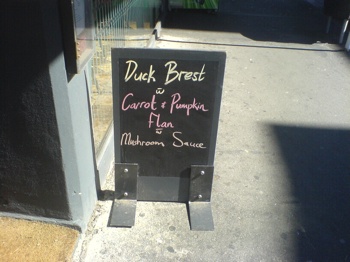 Duck Brest
w
Carrot & Pumpkin
Flan
w
Mushroom Sauce